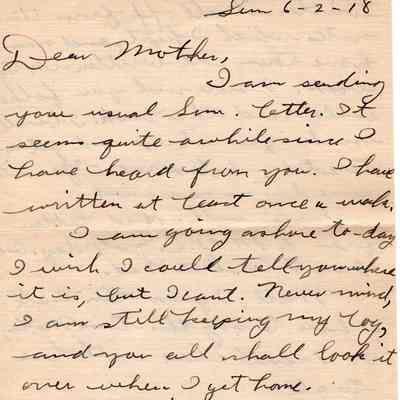 Sun 6-2-18
Dear Mother,
I am sending
your usual Sun. letter. It
seems quite awhile since I
have heard from you. I have
written at least once a week.
I am going ashore to-day
I wish I could tell you where
it is, but I cant. Never mind,
I am still keeping my log,
and you all shall look it
over when I get home.